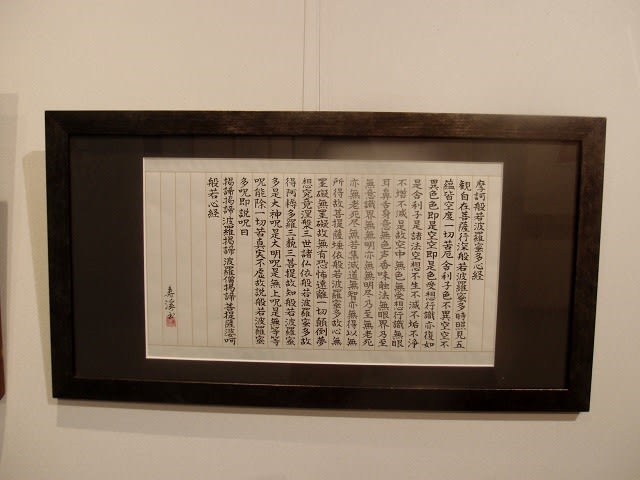 摩訶般若波羅蜜多心経
観自在菩薩行深般若波羅蜜多時照見五
蘊皆空度一切苦厄舎利子色不異空空不
異色色即是空空即是色受想行識亦復如
是舎利子是諸法空想不生不滅不垢不浄
不増不減是故空中無色無受想行識無眼
耳鼻舌身意無色声香味触法無眼界乃至
無意識界無無明亦無無明尽乃至無老死
亦無老死尽無苦集滅道無智亦無得以無
所得故菩提薩埵依般若波羅蜜多故心無
罣礙無罣礙故無有恐怖遠離一切顛倒夢
想究竟涅般三世諸仏依般若波羅蜜多故
得阿耨多羅三藐三菩提故知般若波羅蜜
多是大神呪是大明呪是無上呪是無等等
呪能除一切苦真実不虚故説般若波羅蜜
多呪即説呪曰
掲諦掲諦 波羅掲諦 波羅僧掲諦 菩提薩婆呵
般若心経